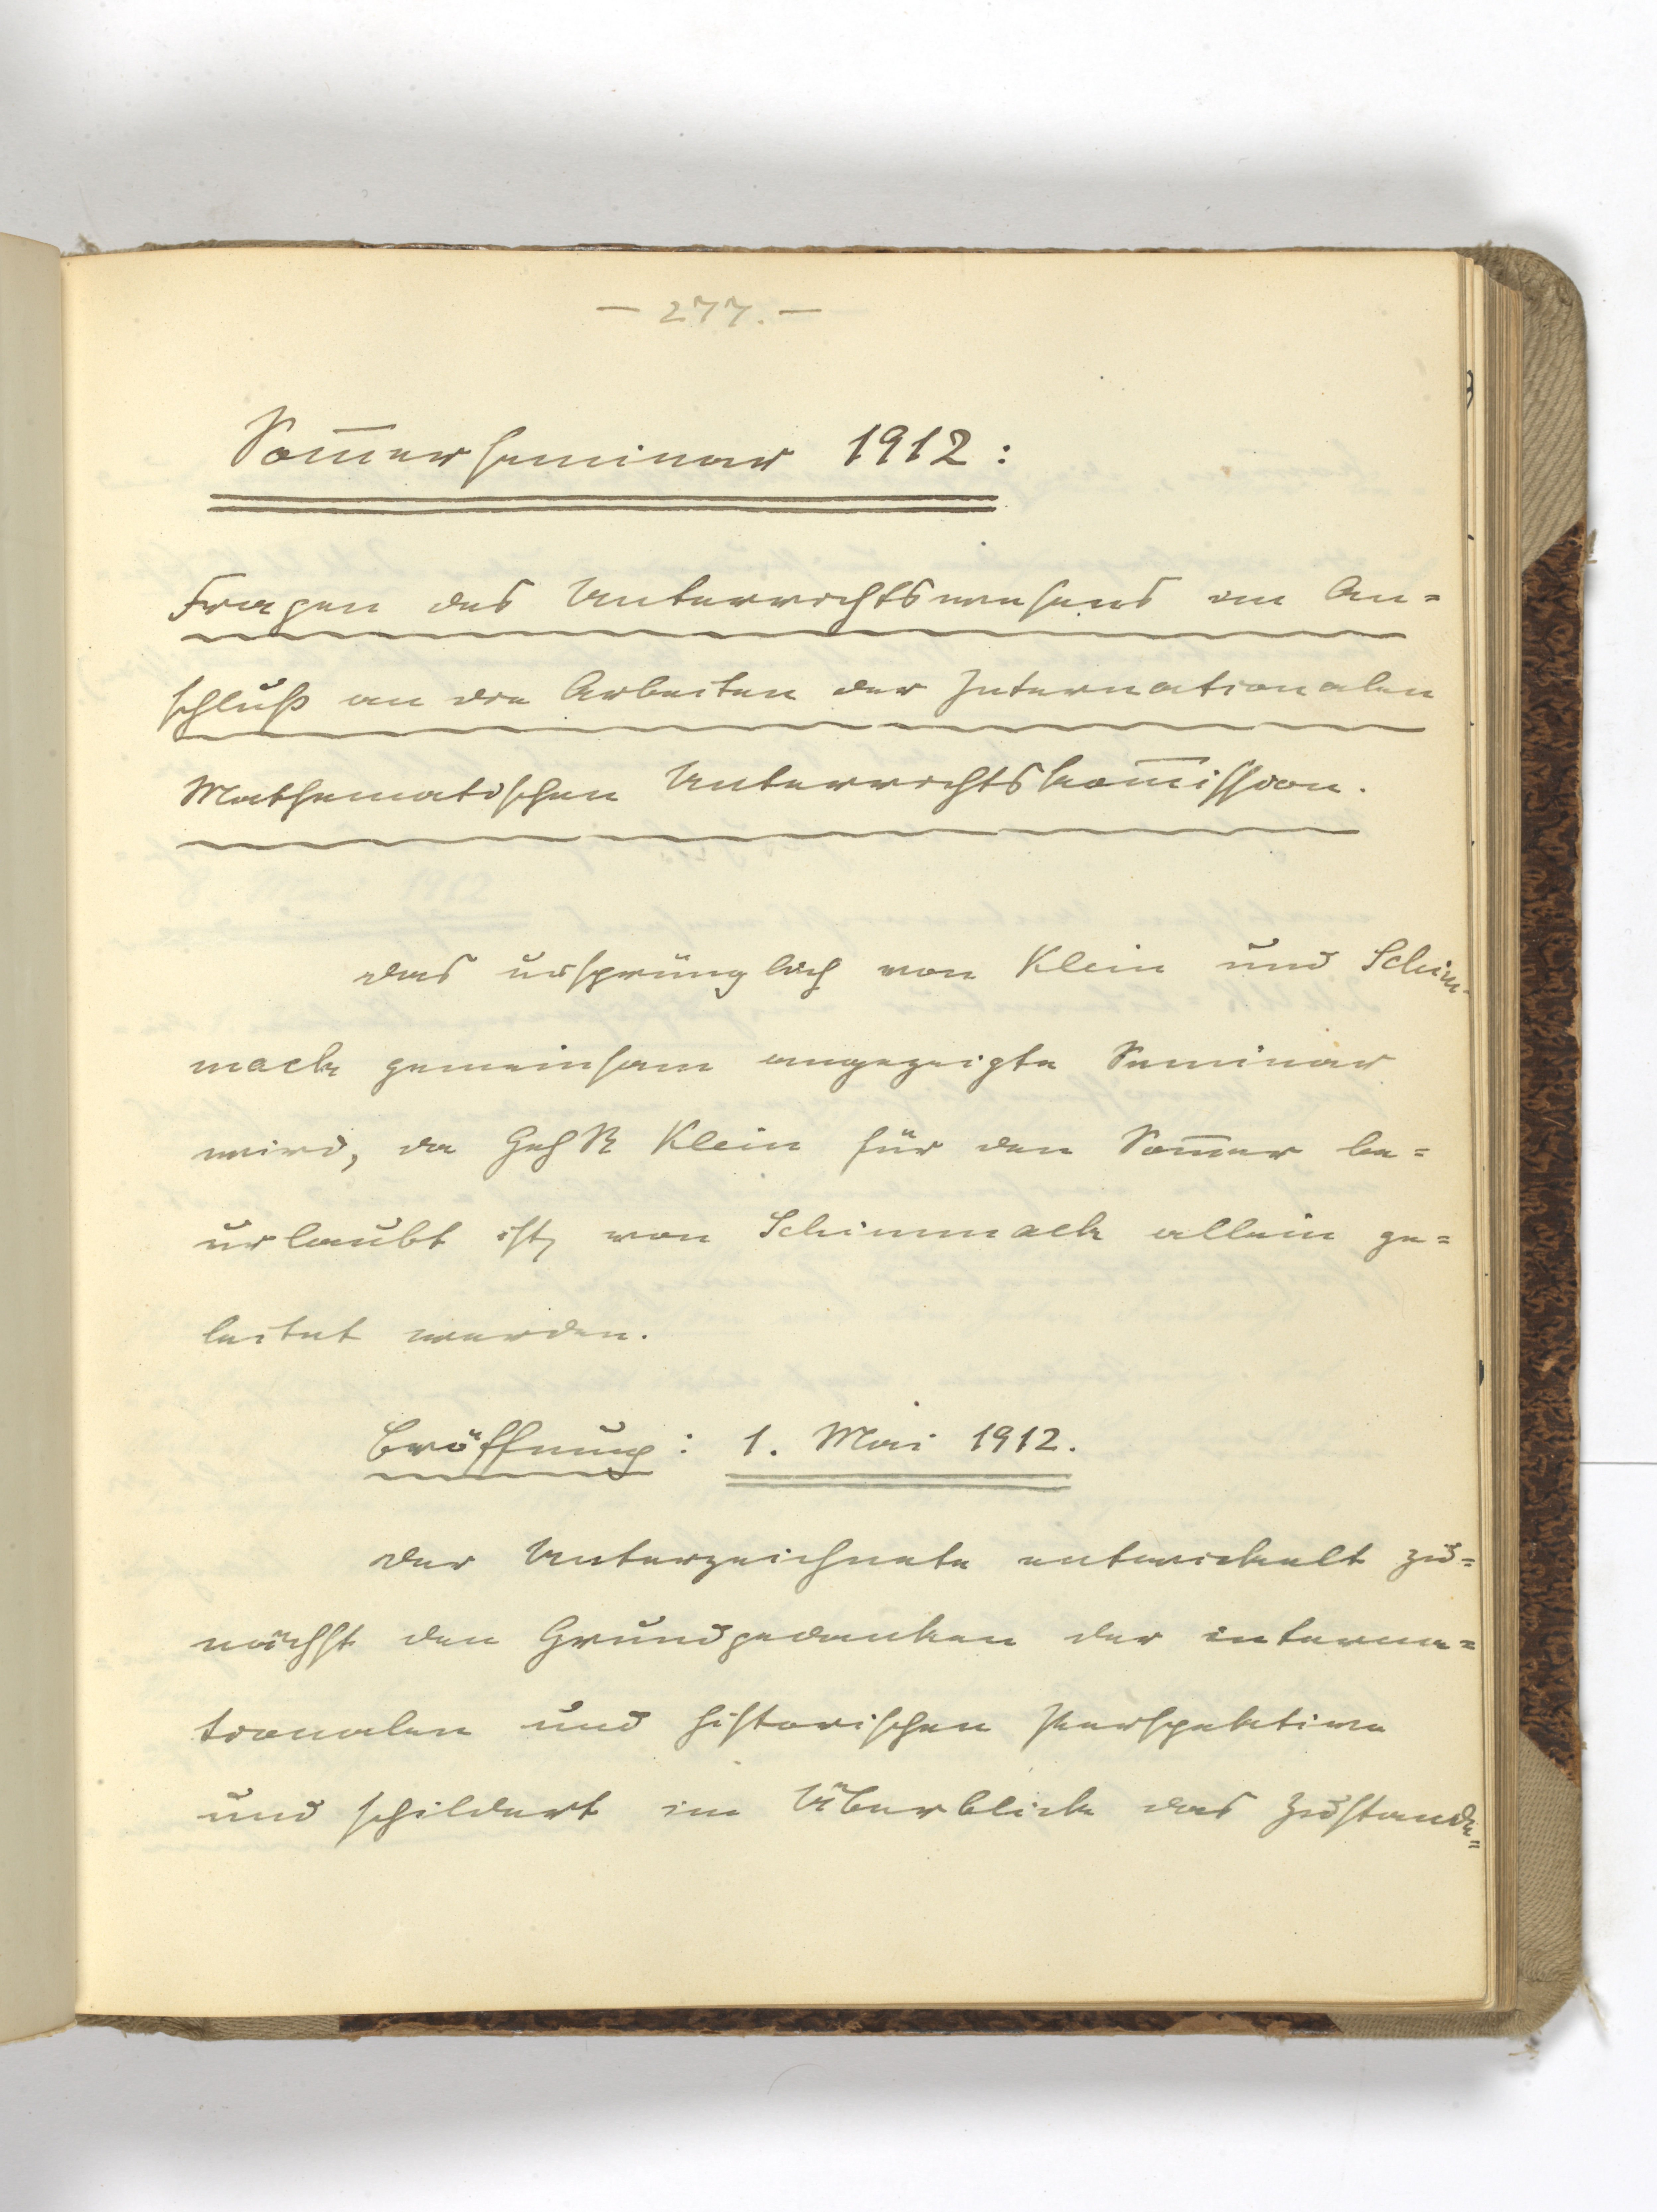 — 277. —
Som̅erseminar 1912:
Fragen des Unterrichtswesens im An=
schluß an die Arbeiten der Internationalen
Mathematischen Unterrichtskom̅ission.
Das ursprünglich von Klein und Schim-
mack gemeinsam angezeigte Seminar
wird, da Geh R Klein für den Som̅er be=
urlaubt ist, von Schimmack allein ge=
leitet werden.
Eröffnung: 1. Mai 1912.
Der Unterzeichnete entwickelt zu=
nächst den Grundgedanken der interna=
tionalen und historischen Perspektive
und schildert im Überblick das Zustande=